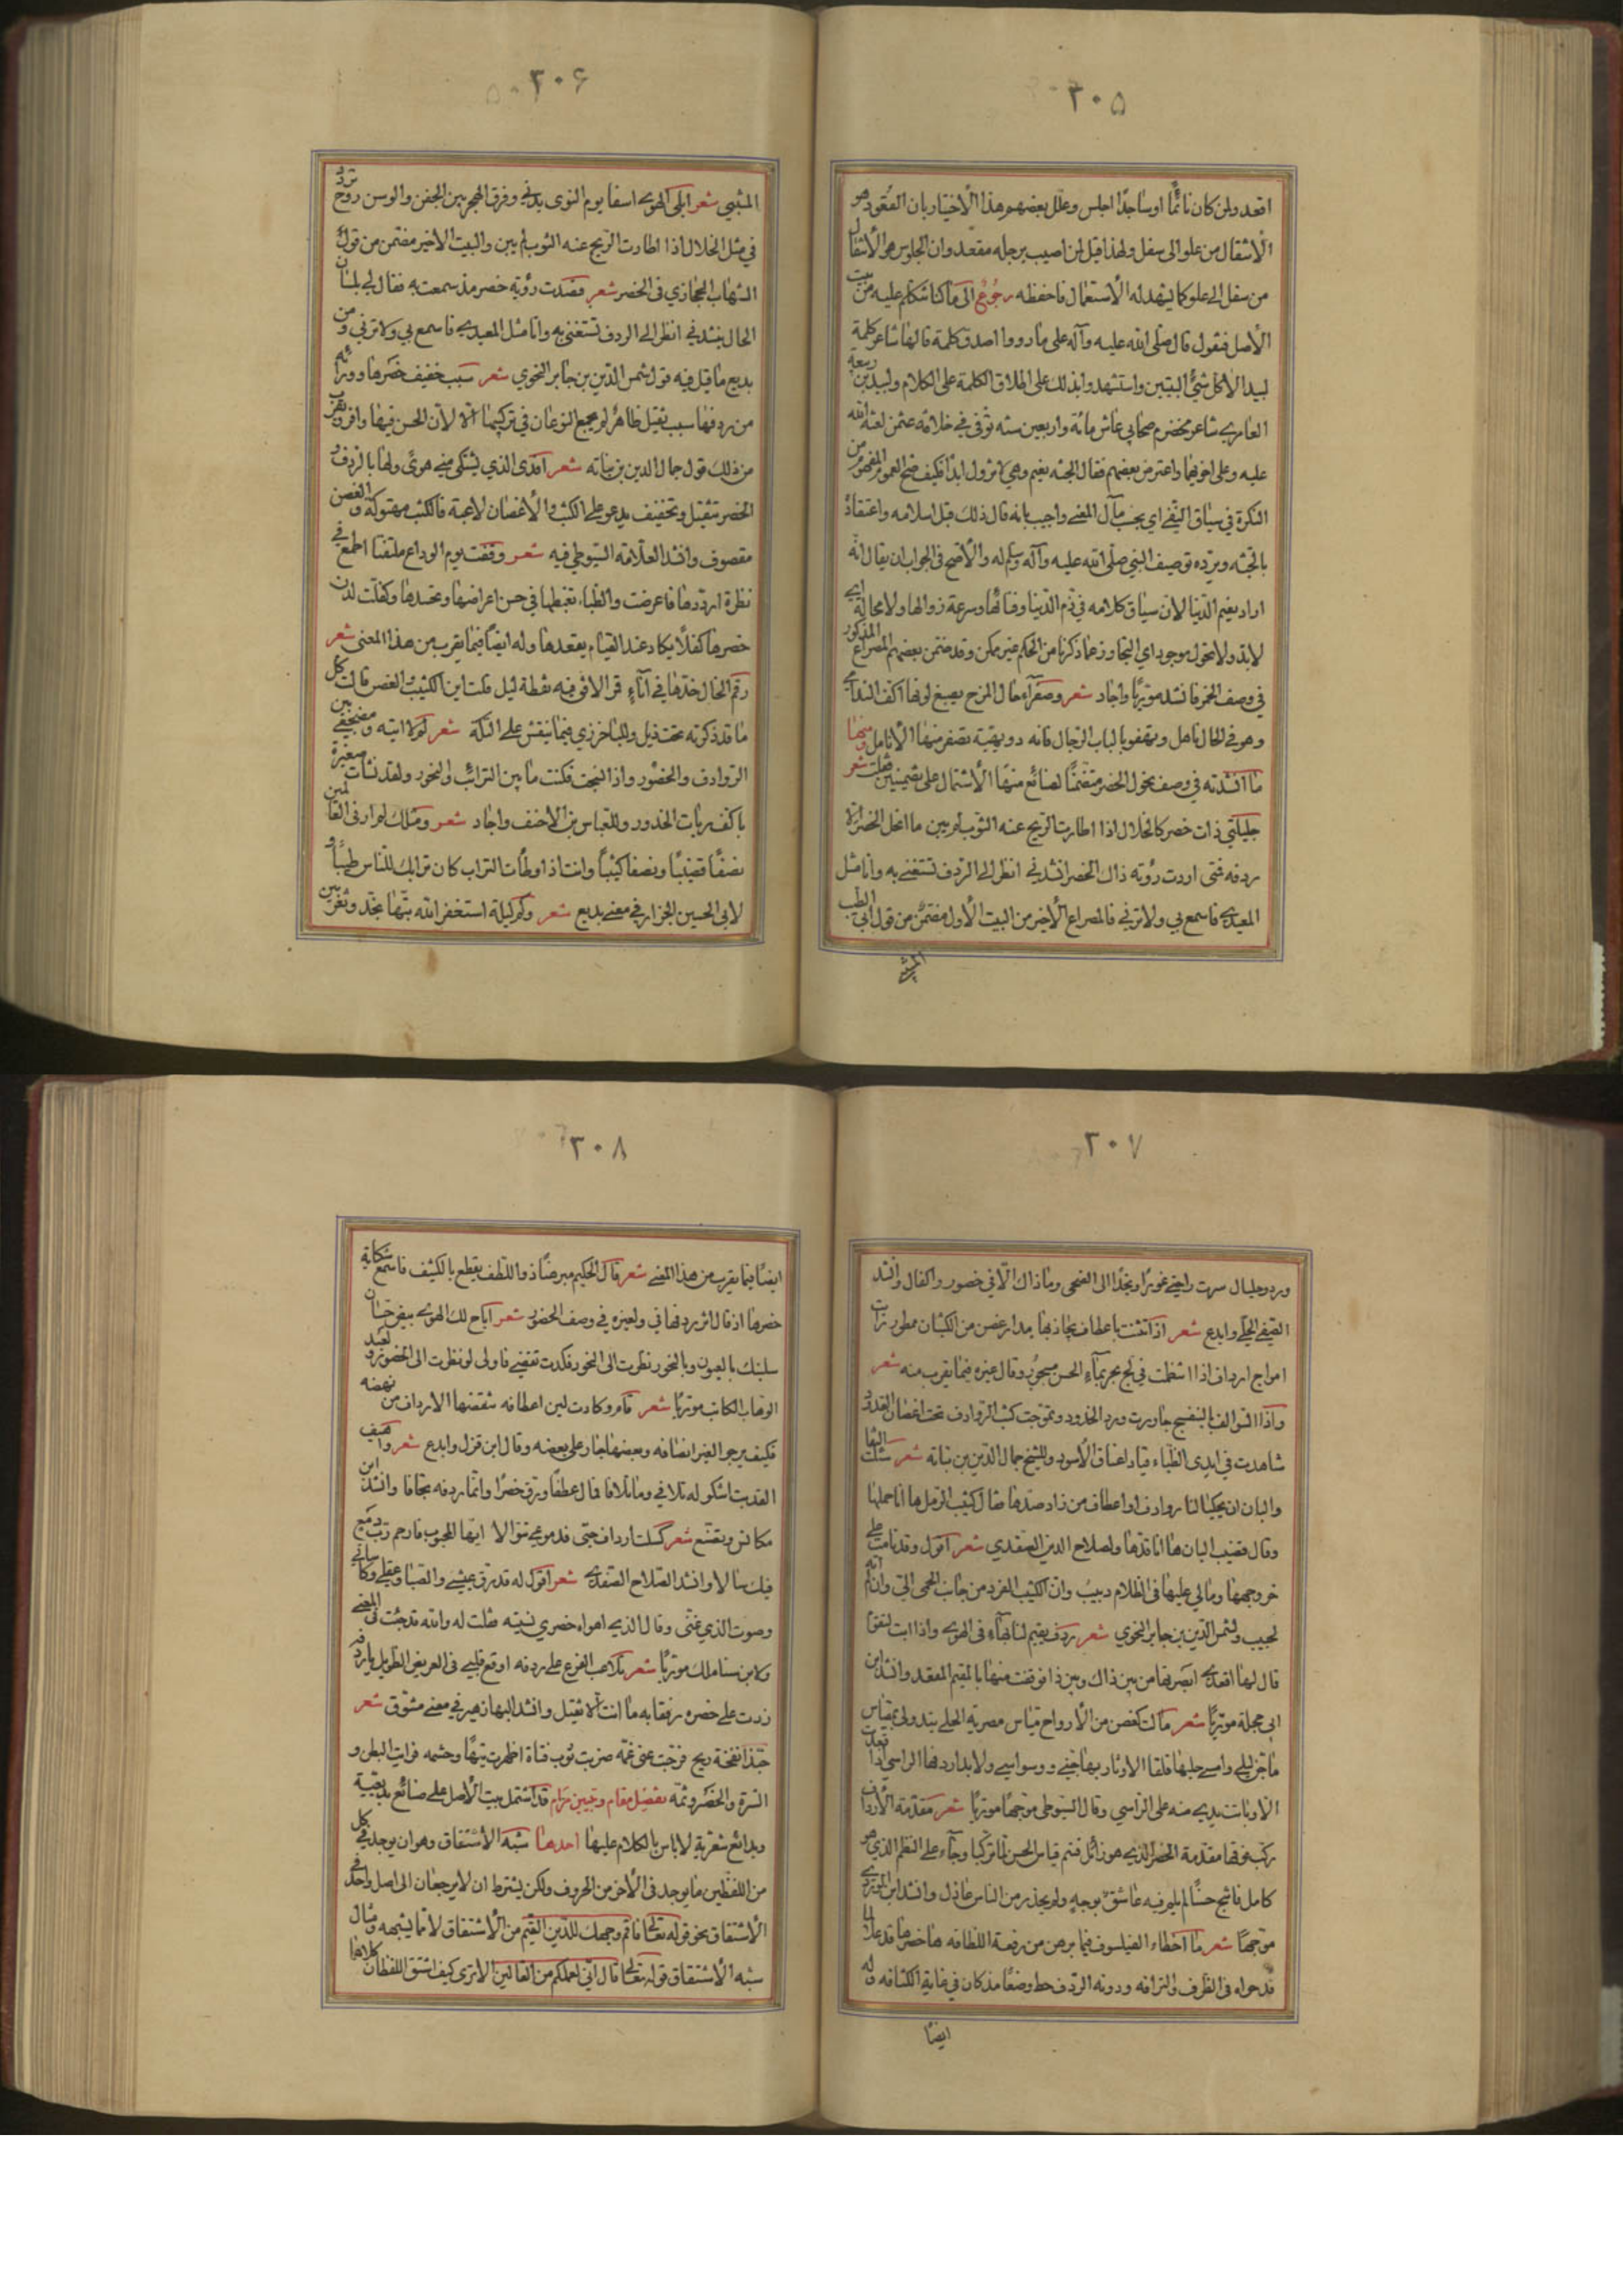 ٣٠۵
اقعد ولمن كان نائمًا او ساجدًا اجلس وعلل بعضهم هذا الاختيار بان القعود هو
الانتقال من علو الى سفل ولهذا قيل لمن اصيب برجله مقعد وان الجلوس هو الانتقال
من سفل الى علو كما يشهد له الاستعمال فاحفظه رجوع الى ما كنا نتكلم عليه من بيت
الاصل فنقول قال صلى الله عليه وآله على ما رووا اصدق كلمة قالها شاعر كلمة
لبيد الا كل شئ البيتين واستشهدوا بذلك على اطلاق الكلمة على الكلام ولبيد بن ربيعة
العامري شاعر مخضرم صحابي عاش مائة واربعين سنه توفى في خلافة عثمن لعنه الله
عليه وعلى اخويهما واعترض بعضهم فقال الجنه نعيم وهى لا تزول ابدا فكيف صح العموم المفهوم من
النكرة في سياق النفى اي بحسب مآل المعنى واجيب بانه قال ذلك قبل اسلامه واعتقاده
بالجنه ويرده توصيف النبي صلى الله عليه وآله وسلم له والاصح فى الجواب ان يقال انه
اراد نعيم الدنيا لان سياق كلامه في ذم الدنيا وفنائها وسرعة زوالها ولا محالة اى
لا بد ولا تحول موجود اي التجاوز عما ذكرنا من الحكم غير ممكن وقد ضمن بعضهم المصراع المذكور
في وصف الخمر فانشد موريًا واجاد شعر وصفرآء حال المزح يصبغ لونها اكف الندامى
وهو فى الحال ناصل وتهفو بالباب الرجال فانه دويهية تصفر منها الانامل ومنها
ما انشدته في وصف نحول الخصر متضمنًا لصنائع منها الاشتمال على تضمينين فقلت شعر
خليلتي ذات خصر كالخلال اذا اطارت الريح عنه الثوب لم يبن ما انحل الخصر الا
ردفه فمتى اردت رؤية ذاك الخصر انشدني انظر الى الردف تستغنى به وانا مثل
المعيدى فاسمع بي ولا ترنى فالمصراع الاخير من البيت الاول مضمن من قول ابى الطيب
المتنبى
٣٠۶
المتنبي شعر ابلى الهوى اسفا يوم النوى بدنى وفرق الهجر بين الجفن والوسن روح تردد
في مثل الخلال اذا اطارت الريح عنه الثوب لم يبن والبيت الاخير مضمن من قول
الشهاب الحجازي فى الخضر شعر قصدت رؤية خضر مذ سمعت به فقال لى بلسان
الحال ينشدني انظر الى الردف تستغنى به وانا مثل المعيدى فاسمع بي ولا ترنى ومن
بديع ما قيل فيه قول شمس الدين بن جابر النحوي شعر سبب خفيف خصرها وورائه
من ردفها سبب ثقيل ظاهر لم يجمع النوعان في تركيبها الا لان الحسن فيها وافر
من ذلك قول جمال الدين بن نباته شعر افدى الذي يشتكى منى هوى ولها بالردف و
الخصر تثقيل وتخفيف يدعو على الكثب والاغصان لاعبة فالكثب مهتوكة والغصن
مقصوف وانشد العلامة السيوطي فيه شعر وقفت يوم الوداع ملتفتا اطمع في
نظرة ارددها فاعرضت والظباء تغبطها في حسن اعراضها وتحسدها وكفلت لدن
خصرها كفلًا يكاد عند القيام يقعدها وله ايضًا فيما يقرب من هذا المعنى شعر
رقم الخال خدها في آناء قر الافق فيه نقطة ليل قلت اين الكثيب والغصن قالت كل
ما قد ذكرته تحت ذيل وللباخرزي فيما ينقش على التكه شعر لم لا اتيه ومضجعى بين
الروادف والخصور واذا نسجت فكنت ما بين الترائب والنحور ولقد نشأت صغيرة
باكف ربات الخدور وللعباس بن الاحنف واجاد شعر ومثلك لم ار فى العالمين
نصفًا قضيبًا ونصفا كثيبًا وانت اذا وطأت التراب كان ترابك للناس طيبًا و
لابى الحسين الجزار في معنى بديع شعر وكم ليلة استغفر الله بتها بخد وثغر بين
٣٠٧
ورد وجلبال سرت راحتى غورًا ونجدًا الى الضحى وما ذاك الا فى خصور واكفال وانشد
الصفى الحلى وابدع شعر اذا انثنت باعطاف يجاذبها مدار غصن من الكثبان ممطور
امواج ارداف اذا اشغلت في لج بحر بمآء الحسن مسجور وقال غيره فيما يقرب منه شعر
واذا السوالف بالبنفسج جاورت ورد الخدود وتموجت كثب الروادف تحت اغصان القدود
شاهدت في ايدى الظباء قياد اعناق الاسود وللشيخ جمال الدين بن نباتة شعر سئلت النقا
والبان ان يحكيا لنا روادف او اعطاف من زاد صدها فقال كثيب الرمل ها انا حملها
وقال قضيب البان ها انا قدها ولصلاح الدين الصفدي شعر اقول وقد نامت على
حر وجهها ومالي عليها فى الظلام دبيب وان الكثيب الفرد من جانب الحمى الي وان لم آته
لحبيب ولشمس الدين بن جابر النحوي شعر ردف يقيم لنا بهآء فى الهوى واذا ابت لنفقا
قال لها اقعدى ابصرتها من بين ذاك وبين ذا فوقعت منها بالمقيم المقعد وانشد ابن
ابى حجلة موريًا شعر مالت كغصن من الارواح مياس مصرية الحلى يندو لى بمقياس
ما جن ليلى وامسى حليها قلقا الا وثار بها جنى ووسواسى ولا بدا ردفها الراسى اذا قعدت
الا وباتت يديه منه على الراسي وقال السيوطى موجهًا موريًا شعر مقدمة الارداف
ركب فوقها مقدمة الخصر الذى هو زائل فتم قياس الحسن لما تركبا وجآء على النظم الذي هو
كامل فانتج حسنًا لم يلم فيه عاشق بوجه ولم يحذر من الناس عاذل وانشد ابن الوردى
موجهًا شعر ما اخطاء الفيلسوف فيما برهن من رفعة اللطافه ها خصرها قد علا لما
قد حواه فى الظرف والترافه ودونه الردف حط وضعًا مذ كان في غاية الكثافه وله
ايضًا
٣٠٨
ايضًا فيما يقرب من هذا المعنى شعر قال الحكيم مبرهنًا ذو اللطف يقطع بالكثيف فاسمع شكاية
خصرها اذ قال اثر ردفها في ولغيره في وصف الخصور شعر اباح لك الهوى بيض حسان
سلبنك بالعيون وبالنحور نظرت الى النحور فكدت تقضى فاولى لو نظرت الى الخصور ولعبد
الوهاب الكاتب موريًا شعر قام وكادت لين اعطافه تقضها الارداف من نهضه
فكيف يرجو الغير انصافه وبعضها جار على بعضه وقال ابن قزل وابدع شعر واهيف
القد بت اشكو له تلافي وما تلافا مال عطفًا ورق خصرًا وانما ردفه تجافا وانشد ابن
مكانس وتقنع شعر كسلت ارداف حبى فدموعى تتوالا ايها المحبوب فارحم رب دمع
فيك سالا وانشد الصلاح الصفدى شعر اقول له قد رق عيشى والصبا وعقلى وكاساتى
وصوت الذي غنى وقال الذى اهواه خصري نسيته فقلت له والله قد جئت فى المعنى
ولابن سنا ملك موريًا شعر تلاعب الفرع على ردفه اوقع قلبى فى العريض الطويل يا ردفه
زدت على خصره رفقا به ما انت الا ثقيل وانشد البها زهير في معنى مشوق شعر
حبذا نفخة ريح فرجت عنى غمة ضربت ثوب فتاة اظهرت تيهًا وحشمه فرايت البطن و
السرة والخصر وثمه تفضيل مقام وتبيين مرام قد اشتمل بيت الاصل على صنائع بديعية
وبدائع شعرية لا باس بالكلام عليها احدها شبه الاشتقاق وهو ان يوجد في كل
من اللفظين ما يوجد فى الآخر من الحروف ولكن يشترط ان لا يرجعان الى اصل واحد في
الاشتقاق نحو قوله تعالى فاقم وجهك للدين القيم من الاشتقاق لا مما يشبهه ومثال
شبه الاشتقاق قوله تعالى قال انى لعملكم من القالين الا ترى كيف اشتق اللفظان كلاهما